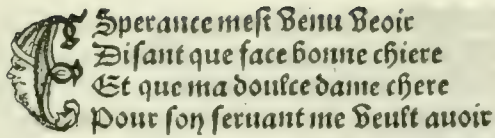 ESperance meſt venu veoir
Diſant que face bonne chiere
Et que ma doulce dame chere
Pour ſon ſeruant me veult auoir